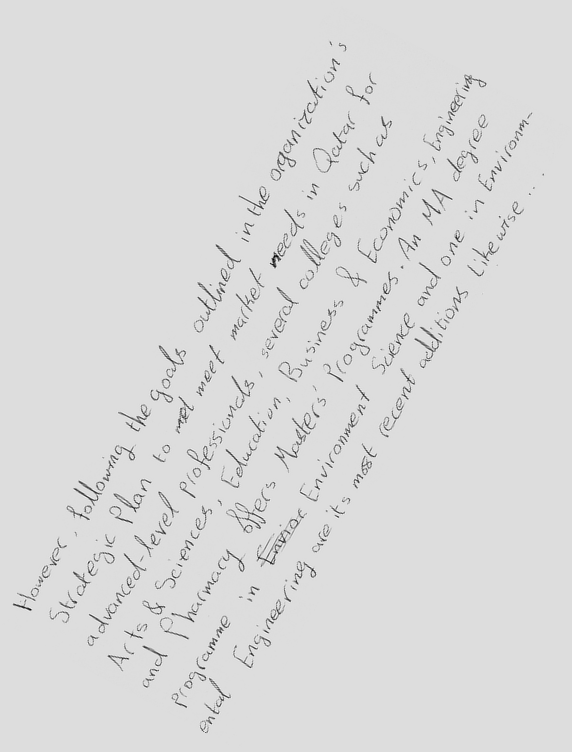 However, following the goals outlined in the organization's
Strategic Plan to meet market needs in Qatar for
advanced-level professionals, several colleges such as
Arts & Sciences, Education, Business & Economics, Engineering
and Pharmacy offers Masters' Programmes. An MA degree
Programme in Envior Environment Science and one in Environm-
ental Engineering are its most recent additions Likewise...